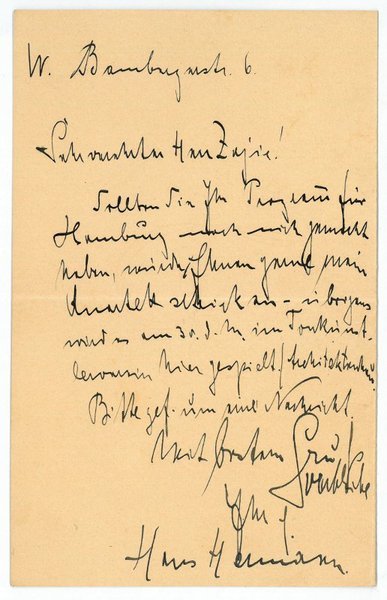 W. Bambergerstr. 6.
Sehr geehrter Herr Zajic!
Sollten Sie Ihr Programm für
Hamburg noch nicht gemacht
haben, würde Ihnen gerne mein
Quartett schicken – übrigens
wird es am 30. d. M. im Tonkünst-
lerverein hier gespielt (Architektenhaus)
Bitte gef. um eine Nachricht.
Mit bestem Gruß!
Ihr
Hans Hermann.